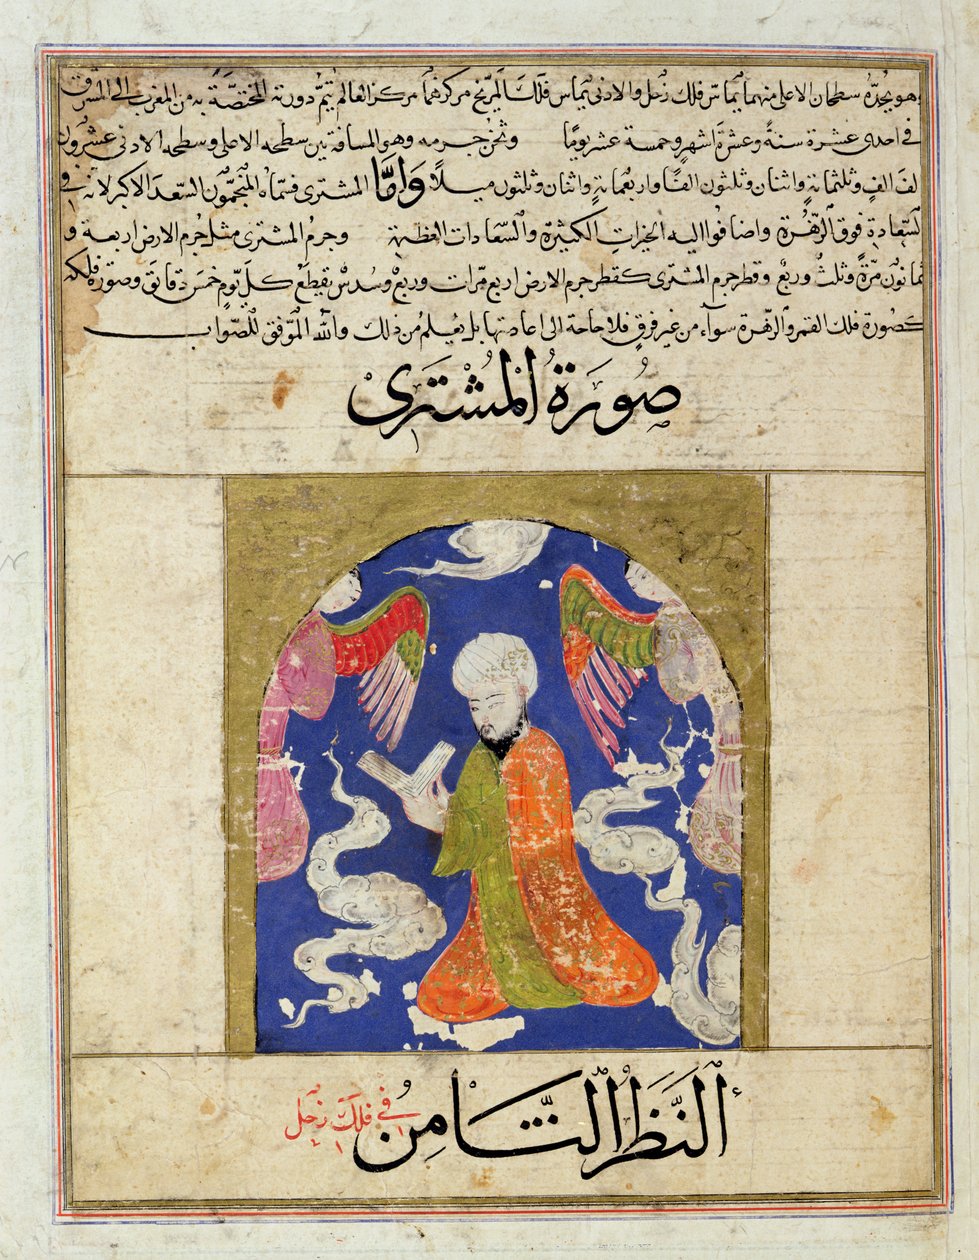 وهو يحدّه سطحان الاعلى منهما يماسّ فلك زحل والادنى يماس فلك المريخ مركزهما مركز العالم يُتمّ دورته المختصّة به من المغرب الى المشرق
فى احدى عشرة سنةً وعشرة اشهرٍ وخمسة عشر يومًا وثخن جرمه وهو المسافة بين سطحه الاعلى وسطحه الادنى عشرون
الف الفٍ وثلثمائةٍ واثنان وثلثون الفًا واربعمائةٍ واثنان وثلثون ميلًا وَامّا المشترى فسمّاه المنجّمون السعد الاكبر لانه فى
السّعادة فوق الزّهُرة واضافوا اليه الخيرات الكثيرة والسّعادات العظيمة وجرمُ المشترى مثل جرم الارض اربعة و
ثمانون مرّةً وثلثٌ وربعٌ وقطر جرم المشترى كقطر جرم الارض اربع مرّات وربعٌ وسُدسٌ يقطع كلّ يومٍ خمس دقائق وصورة فلكه
كصُورة فلك القمر والزهرة سوآء من غير فرقٍ فلا حاجة الى اعادتها بل يُعلم من ذلك والله الموّفق للصّواب
صُورَةُ المُشتَرى
اَلنَّظَرُ الثَّامِنُ فى فلك زحل